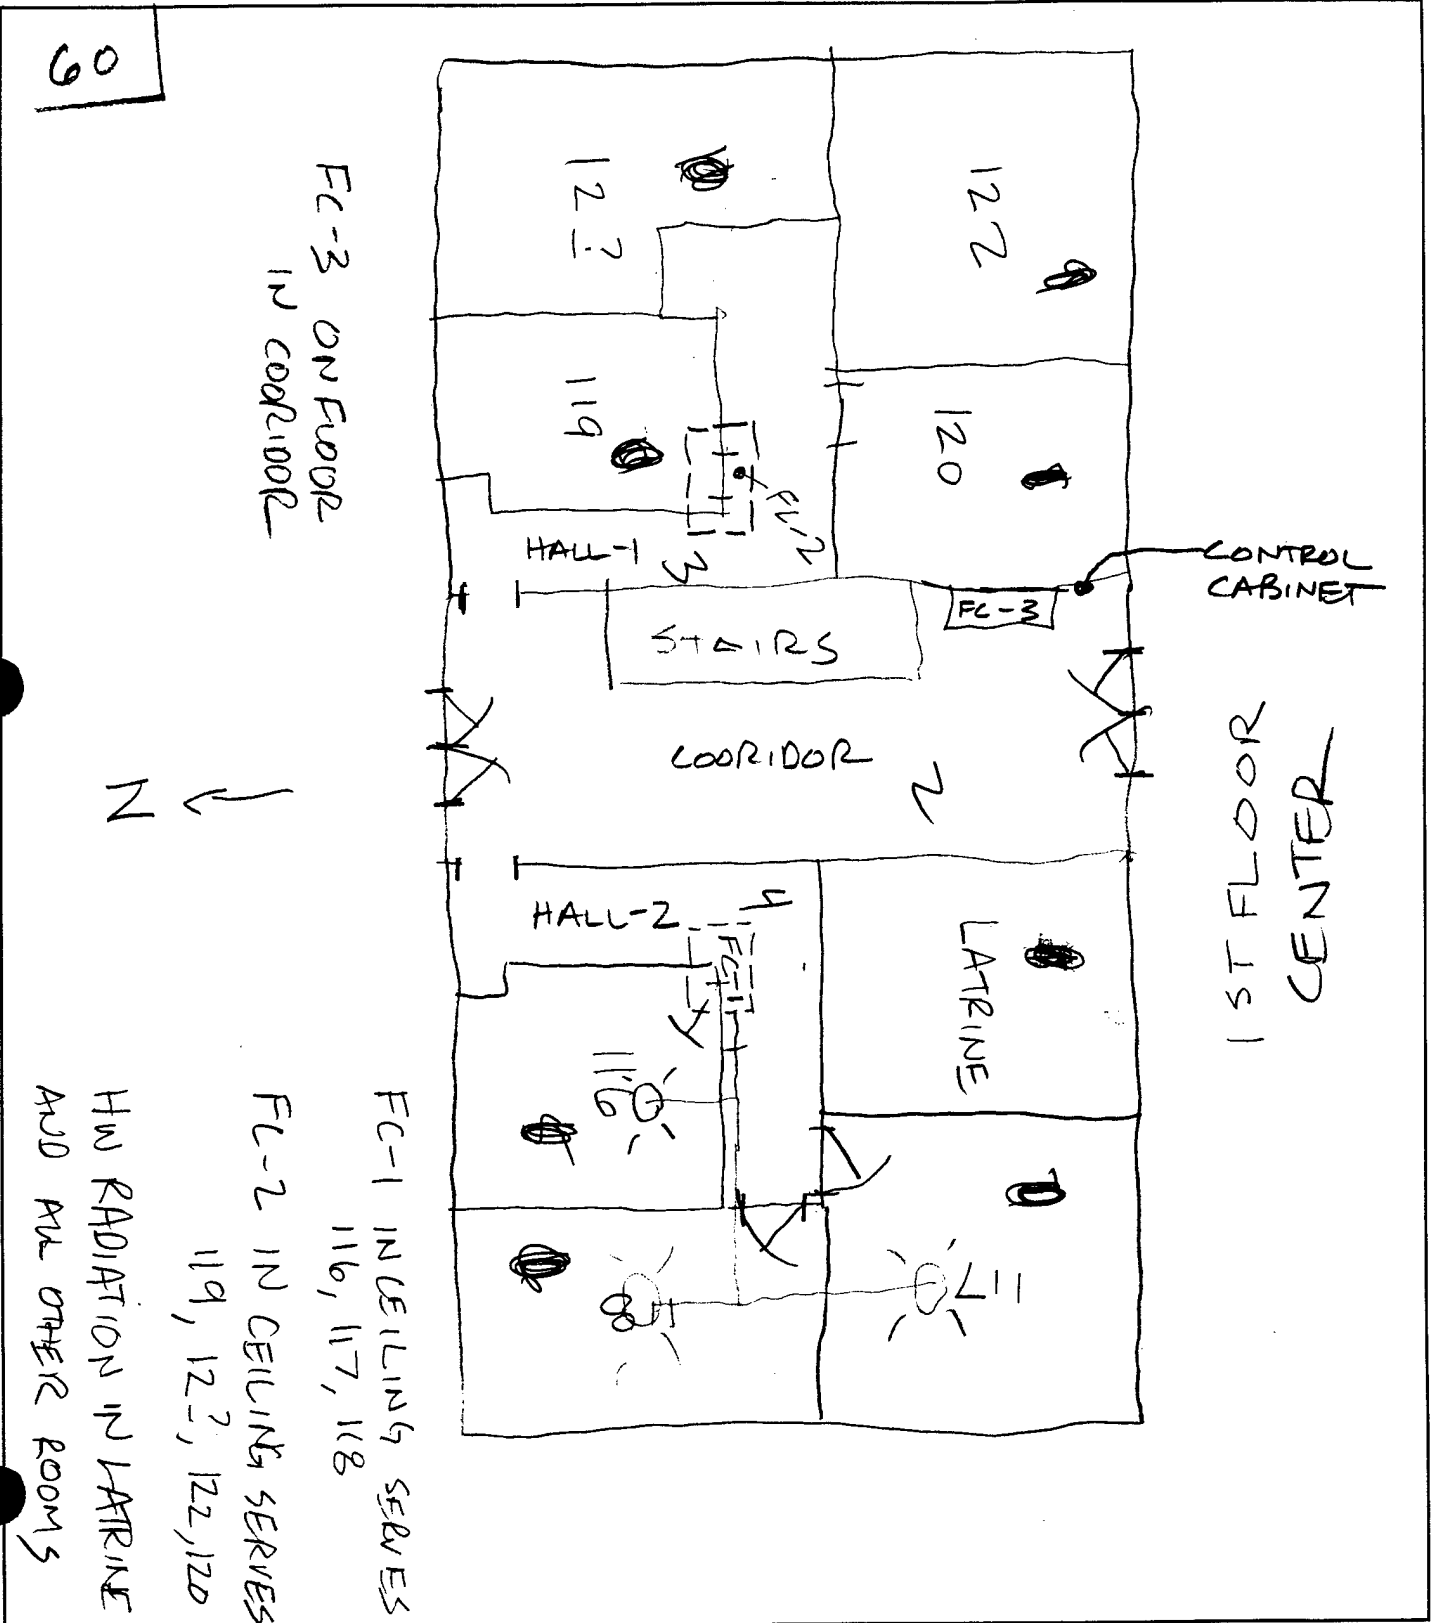 60
1ST FLOOR
CENTER
CONTROL
CABINET
122
120
LATRINE
117
FC-3
STAIRS
COORIDOR
2
FC-2
3
HALL-1
4
HALL-2
FC-1
12?
119
116
118
FC-3 ON FLOOR
IN COORIDOR
N
FC-1 IN CEILING SERVES
116, 117, 118
FC-2 IN CEILING SERVES
119, 12?, 122, 120
HW RADIATION IN LATRINE
AND ALL OTHER ROOMS